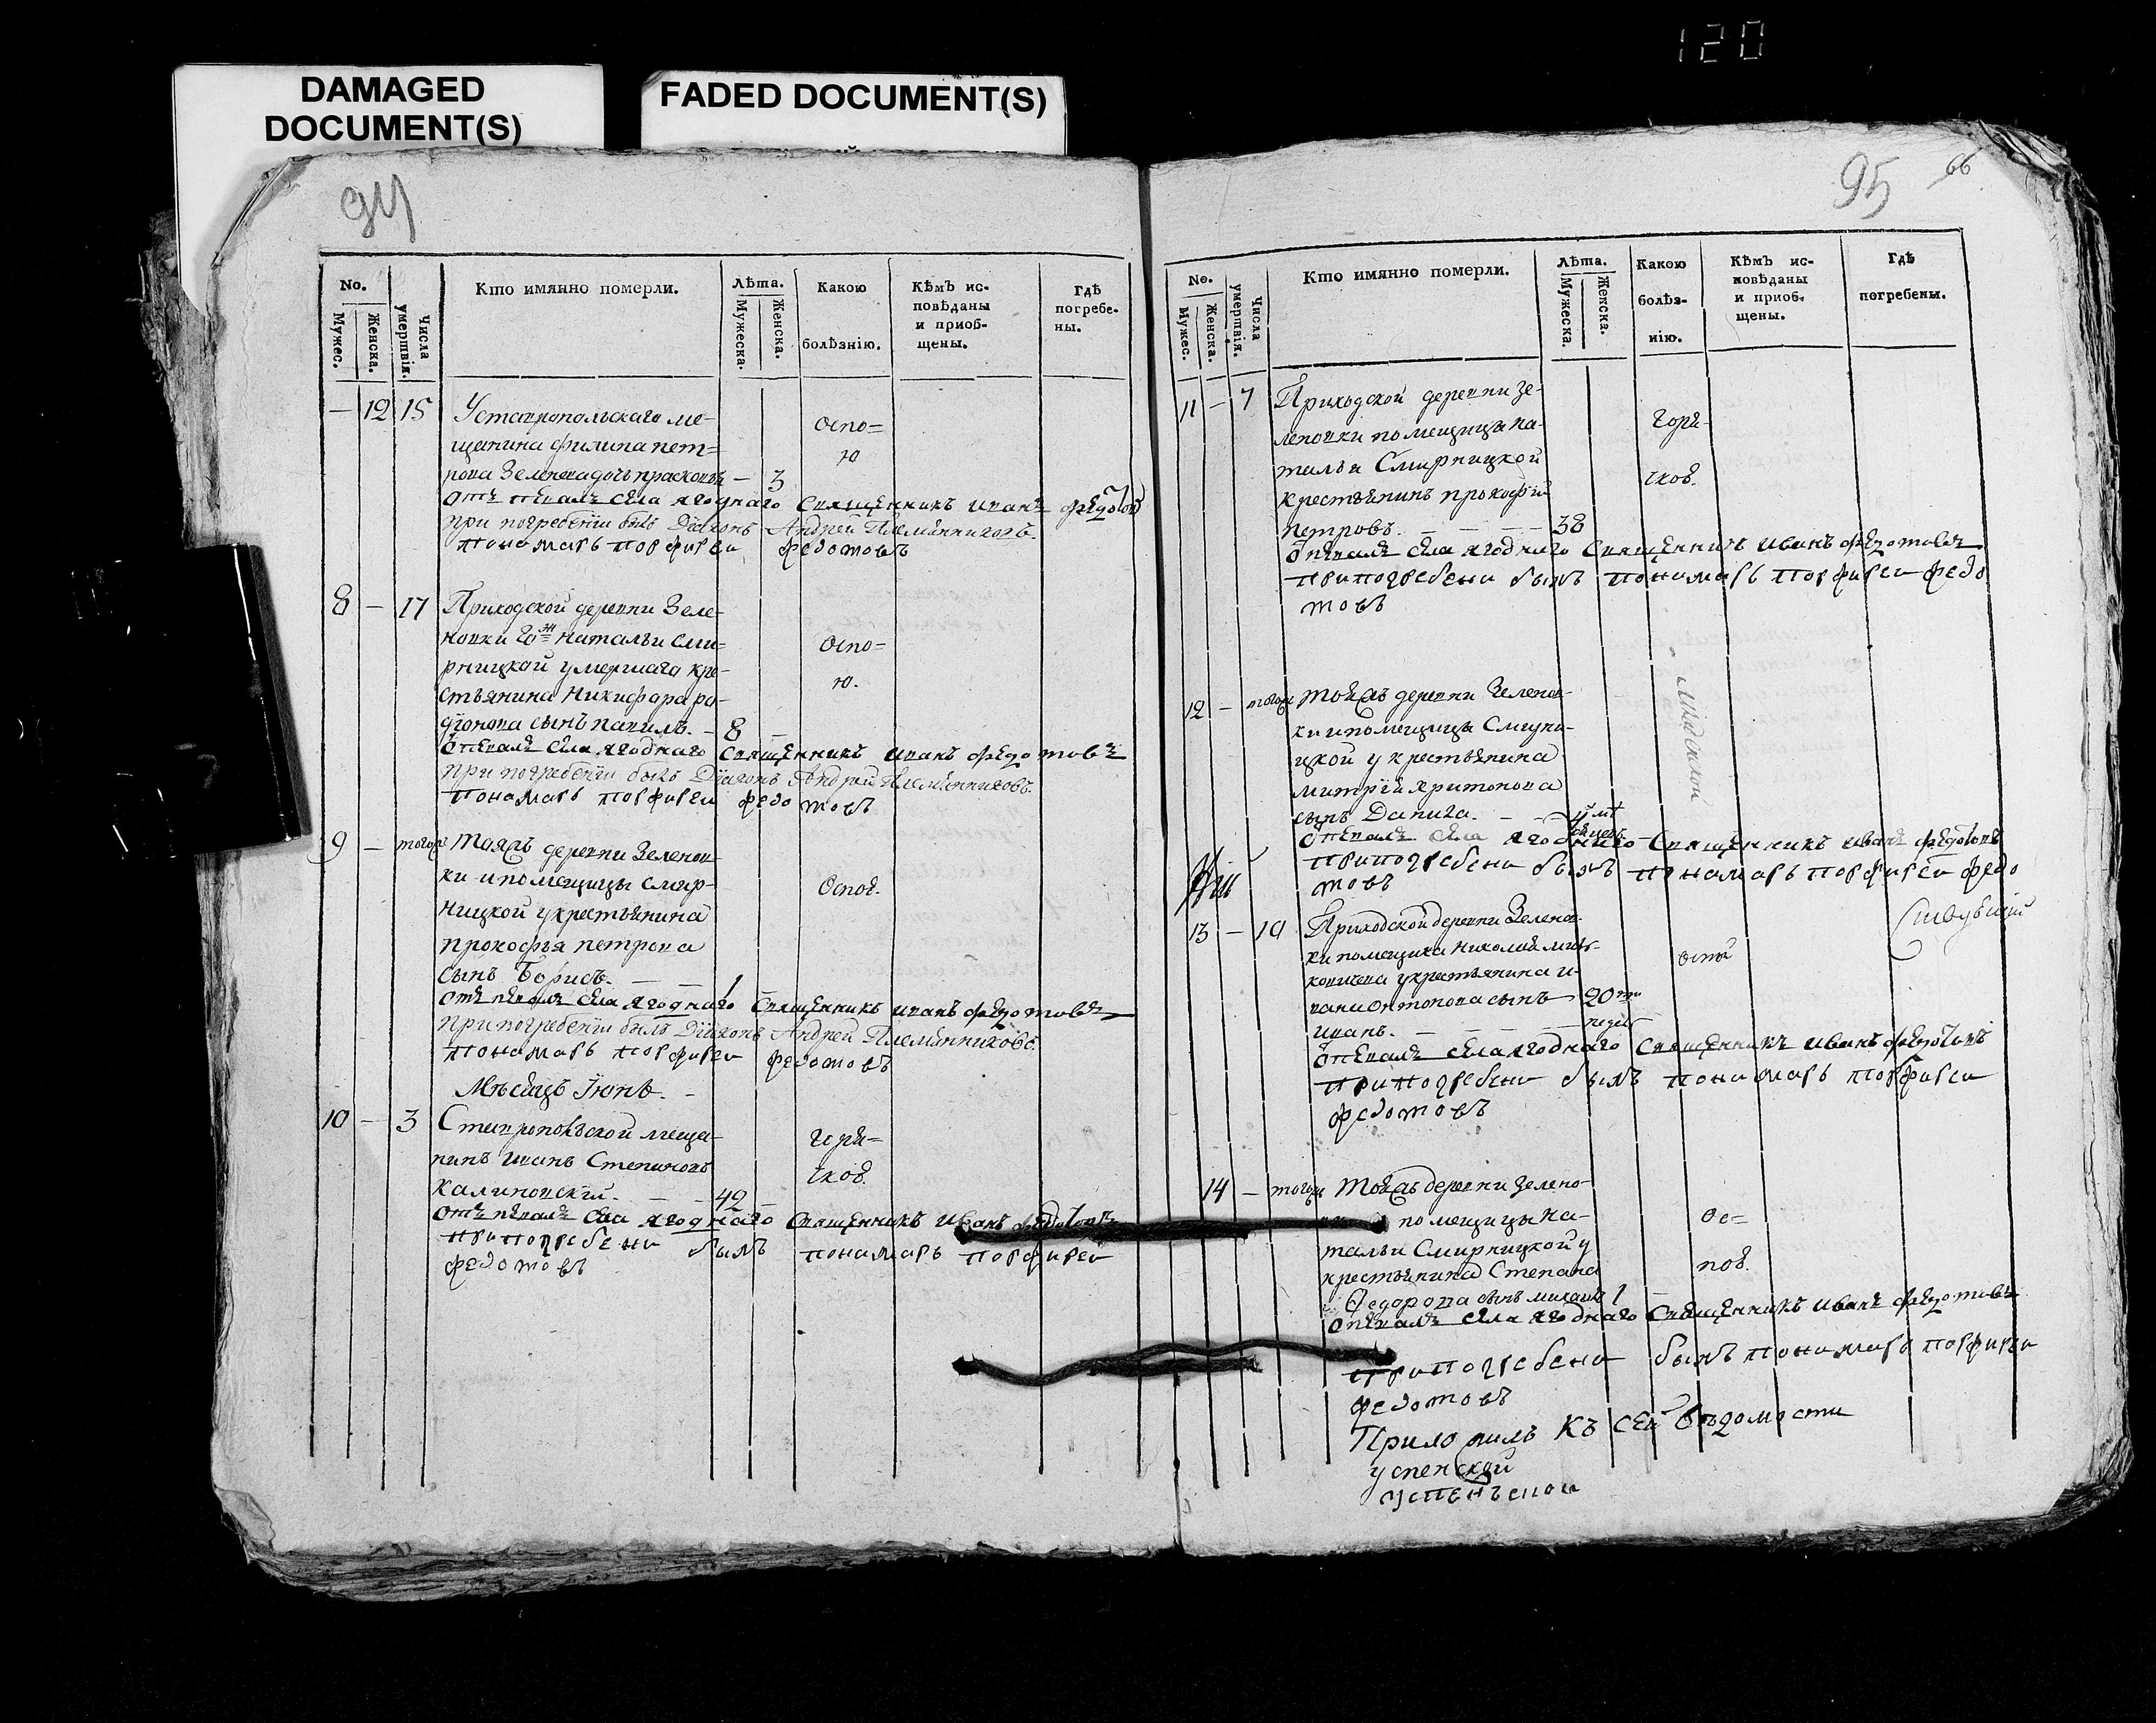 120
DAMAGED
DOCUMENT(S)
FADED DOCUMENT(S)
94
No.
Мужес.
Женска.
Числа умертвія.
Кто имянно померли.
Лѣта.
Мужеска.
Женска.
Какою
болѣзнію.
Кѣмъ ис-
повѣданы
и приоб-
щены.
Гдѣ
погребе-
ны.
— 12 15 Уставропольскаго ме-
щанина филипа пет=
рова Зеленова дочь — 3
оспо=
ю
отъ певалъ села ягоднаго Священникъ иванъ федотов
при погребенїи былъ Дїяконъ Андрей Племянниковъ.
пономарь порфирей федотовъ
8 — 17 Приходской деревни Зеле-
новки Гож Натальи сми=
рницкой умершаго кре-
стьянина Никифара ра-
дїонова сынъ 8 —
оспо=
ю.
отпевалъ села ягоднаго Священникъ иванъ федотовъ
при погребенїи былъ Дїяконъ Андрей Племянниковъ.
пономарь порфирей федотовъ
9 — тогоже Тояжъ деревни Зеленов
ки и помещицы смир-
ницкой у крестьянина
прокофья петрова
сынъ Борисъ. — — 1 —
Оспой.
отъ певалъ села ягоднаго Священникъ иванъ федотовъ
при погребенїи былъ Дїяконъ Андрей Племянниковъ.
пономарь порфирей федотовъ
Мѣсяцъ Їюнь. -
10 — 3 Ставропольской меща-
нинъ иванъ Степановъ
калиновскїй. — — 42 —
горя=
чкой.
отъ певалъ села ягоднаго Священникъ иванъ федотовъ
припогребени былъ пономарь порфирей
федотовъ
95
66
No.
Мужес.
Женска.
Числа умертвія.
Кто имянно померли.
Лѣта.
Мужеска.
Женска.
Какою
болѣз-
нію.
Кѣмъ ис-
повѣданы
и приоб-
щены.
Гдѣ
погребены.
11 — 7 Приходской деревни зе-
леновки помещицы на-
тальи Смирницкой
крестьянинъ прокофїй
петровъ. — — — 38
горя-
чкой.
отпевалъ села ягоднаго Священникъ иванъ федотовъ
припогребени былъ пономарь порфирей федо
товъ
12 — тогоже Тойжъ деревни Зеленов-
ки и помещицы Смирни-
цкой у крестьянина
митрїй Харитонова
сынъ Данила. — —
Младской
отпевалъ села ягоднаго Священникъ иванъ федотовъ
припогребени былъ пономарь порфирей федо
товъ
13 — 19 Приходской деревни Зелено-
ки помещика Николай
у крестьянина и-
вана онтонова сынъ — 20ти
иванъ. — — — — недел
оспой
отпевалъ села ягоднаго Священникъ иванъ федотовъ
припогребени былъ пономарь порфирей
федотовъ
14 — тогоже Тойжъ деревни зелено-
помещицы на-
тальи Смирницкой у
крестьянина Степана
Федорова сынъ михаилъ 1 —
ос=
пой.
отпевалъ села ягоднаго Священникъ иванъ федотовъ
припогребени былъ пономарь порфирей
федотовъ
Прило жилъ къ сей Ведомости
успенской